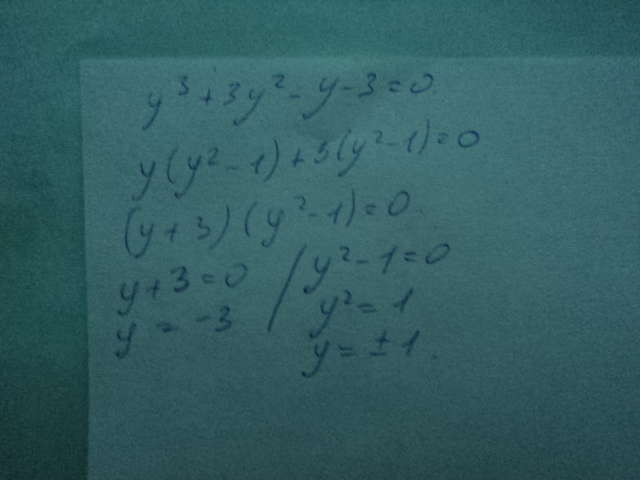 y³+3y²-y-3=0
y(y²-1)+3(y²-1)=0
(y+3)(y²-1)=0.
y+3=0 / y²-1=0
y=-3 y²=1
y=±1.